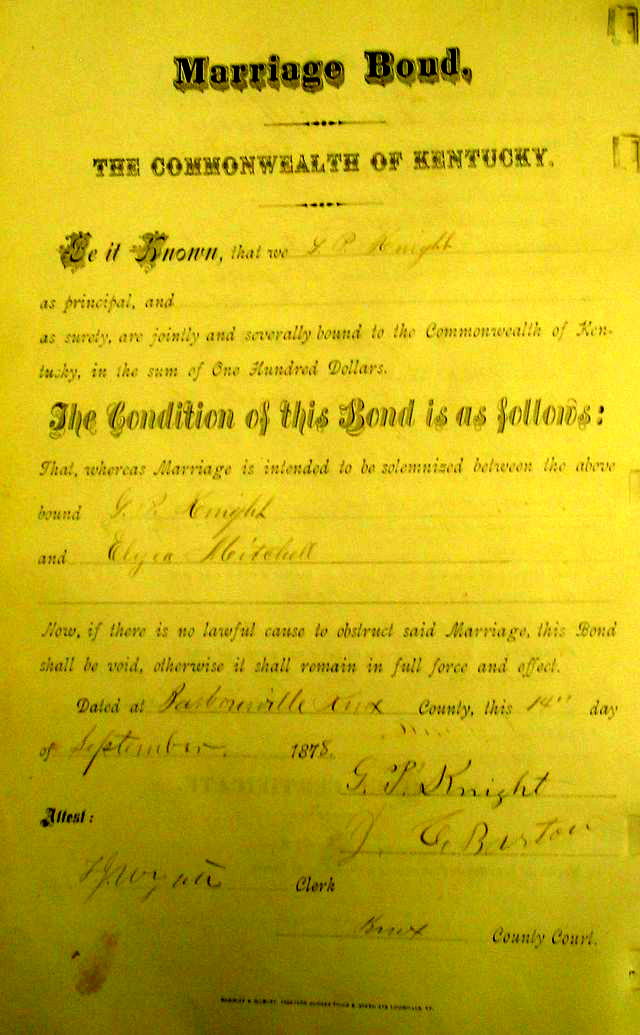 Marriage Bond,
THE COMMONWEALTH OF KENTUCKY.
Be it Known, that we G. P. Knight
as principal, and
as surety, are jointly and severally bound to the Commonwealth of Ken-
tucky, in the sum of One Hundred Dollars.
The Condition of this Bond is as follows:
That, whereas Marriage is intended to be solemnized between the above
bound G. P. Knight
and Elyea Mitchell
Now, if there is no lawful cause to obstruct said Marriage, this Bond
shall be void, otherwise it shall remain in full force and effect.
Dated at Barbourville Knox County, this 14" day
of September 1878.
G. P. Knight
Attest:
J. C. Burton
Clerk
Knox County Court.